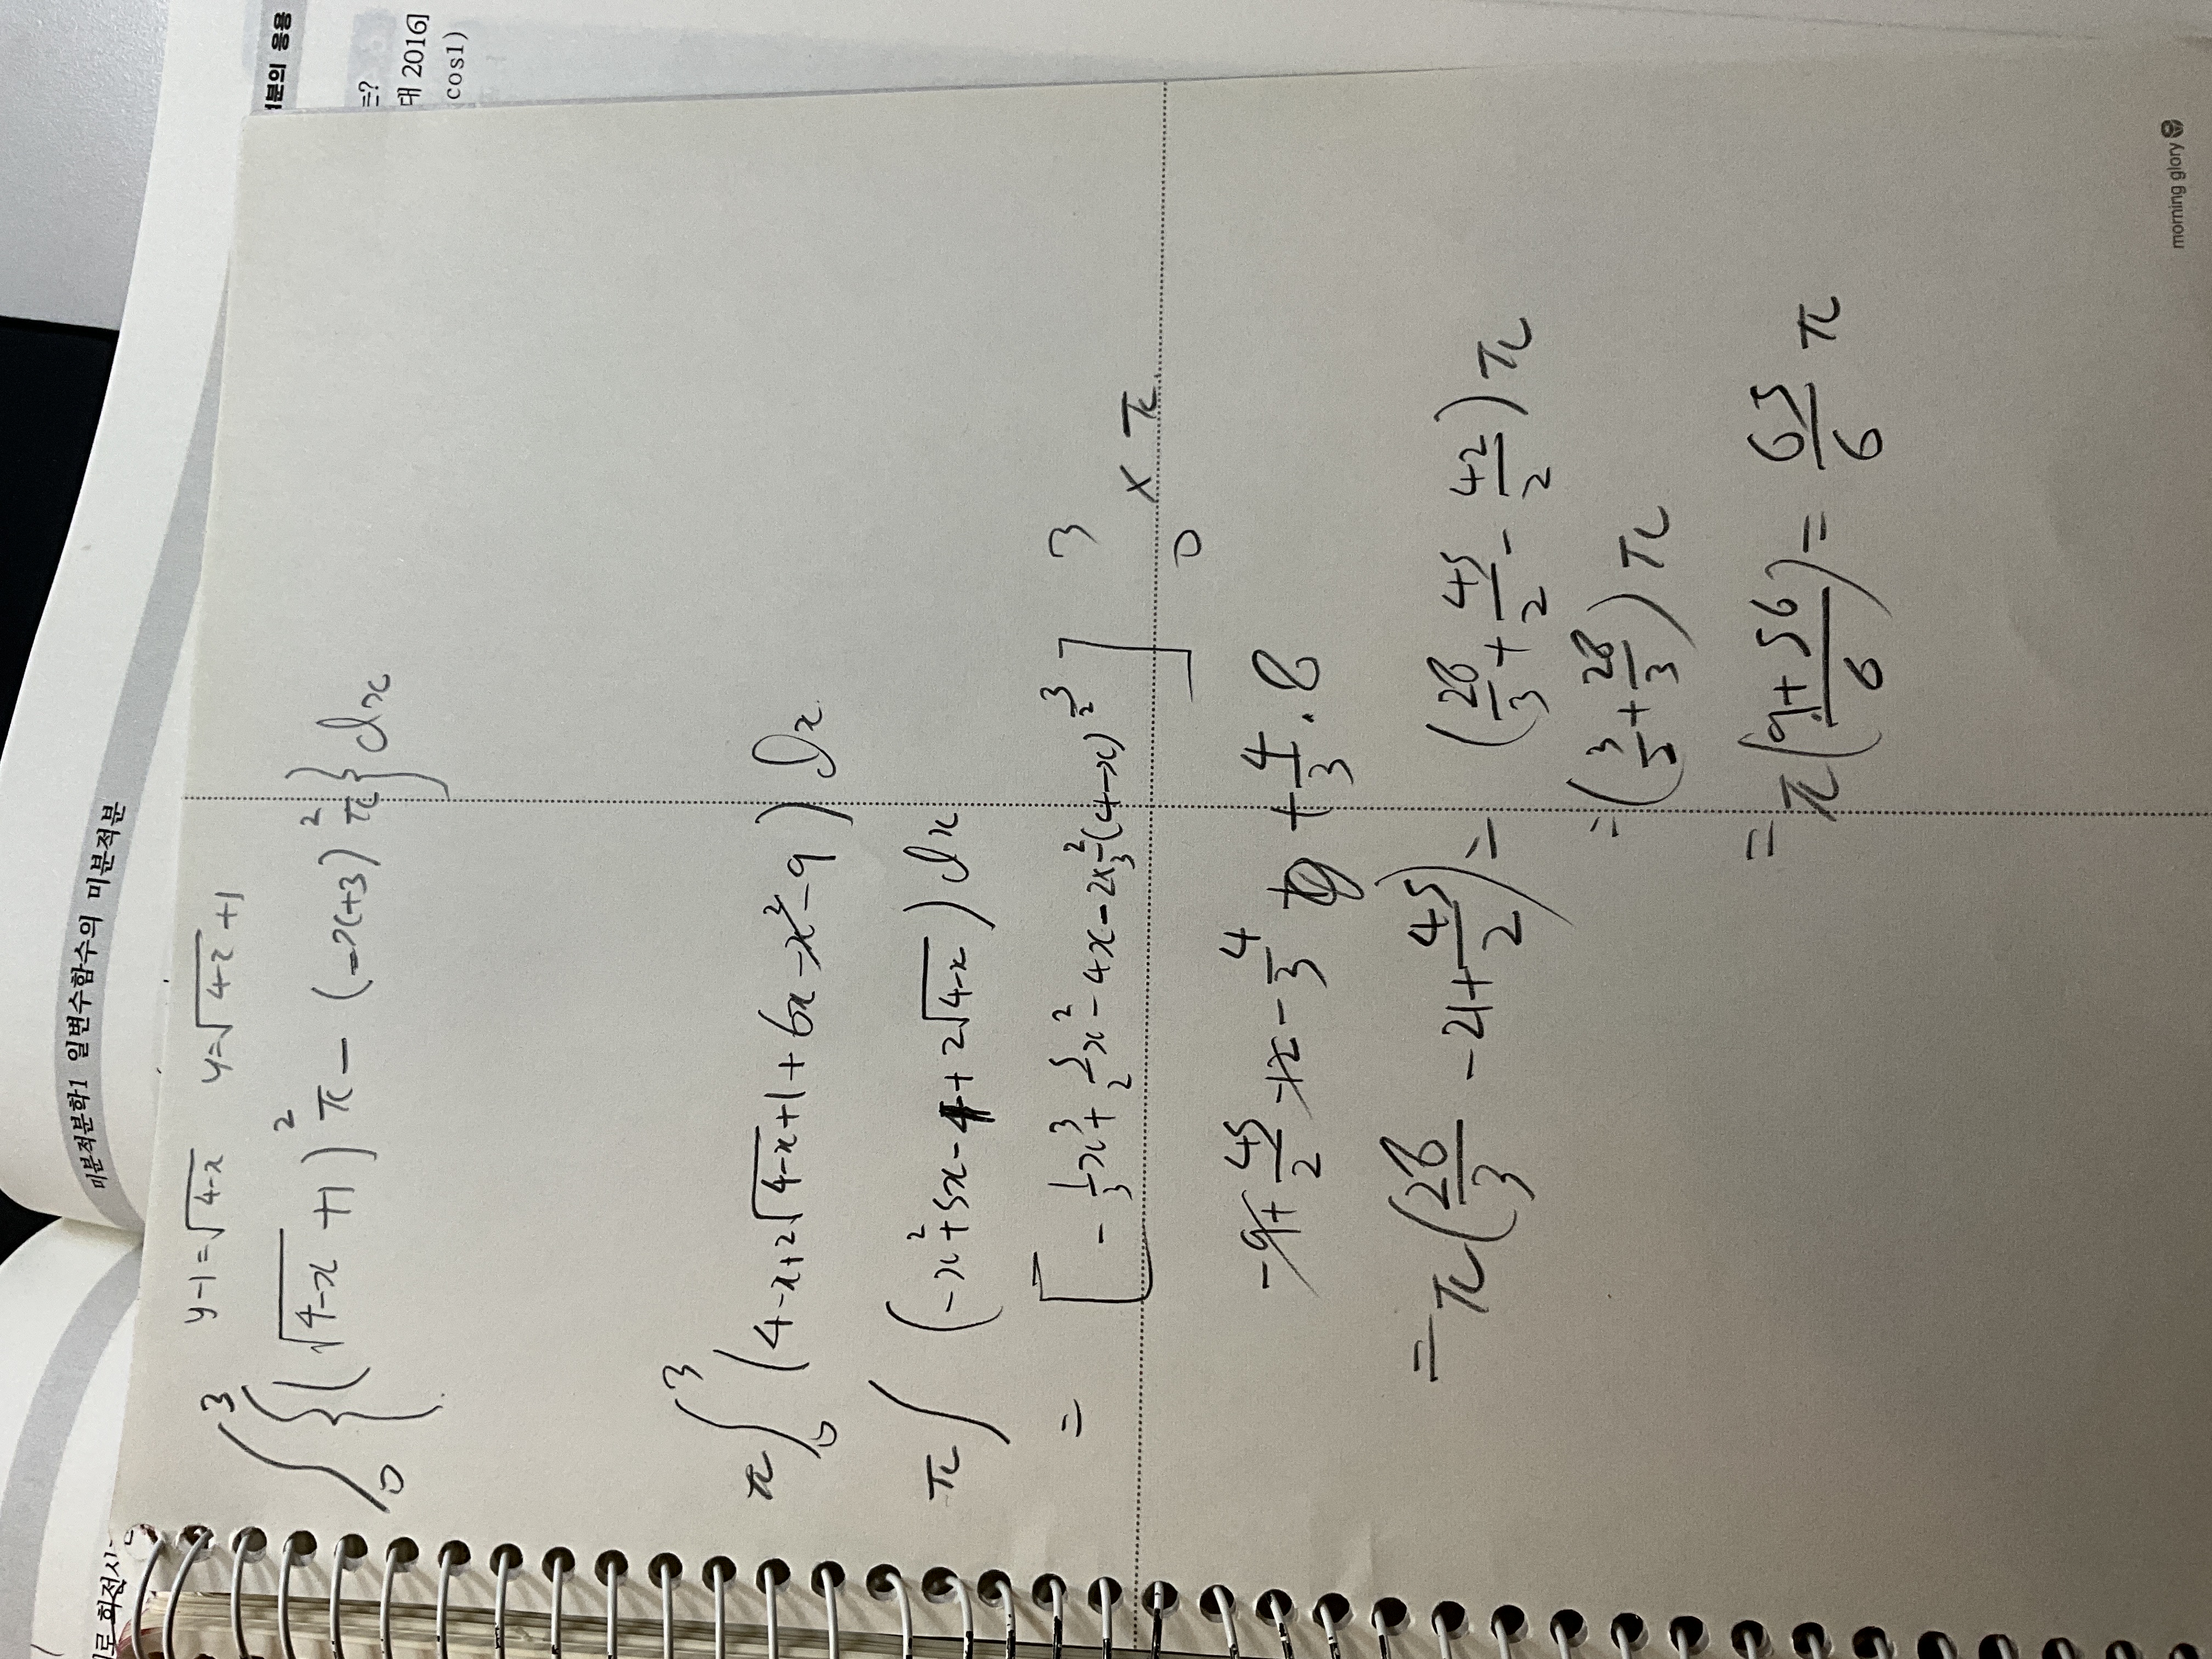 미분적분학1 일변수함수의 미분적분
분의 응용
=?
대 2016]
cos1)
y-1=√(4-x) y=√(4-x)+1
∫₀³{(√(4-x)+1)²π-(-x+3)²π}dx
π∫₀³(4-x+2√(4-x)+1+6x-x²-9)dx
π∫(-x²+5x-4+2√(4-x))dx
=[-1/3x³+5/2x²-4x-2×2/3(4-x)^(3/2)]₀³×π
-9+45/2-12-4/3+4/3·8
=π(28/3-21+45/2)=(28/3+45/2-42/2)π
=(3/2+28/3)π
=π(9+56/6)=65/6π
morning glory